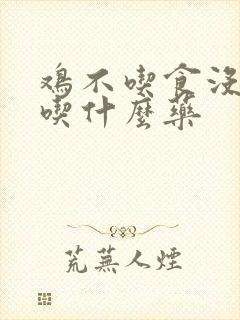 鷄不喫食沒
喫什麼藥
荒蕪人煙